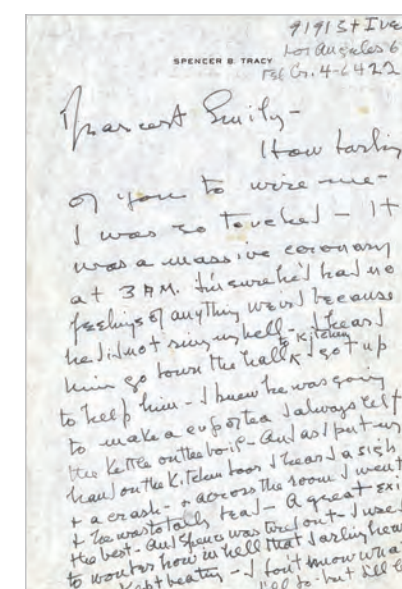 9191 St Ive
Los Angeles 6
SPENCER B. TRACY
Tel Cr. 4-6422
Dearest Emily-
How darling
of you to wire me-
I was so touched - It
was a massive coronary
at 3 AM. I'm sure he'd had no
feelings of anything weird because
he did not ring my bell - I heard
him go down the hall to kitchen I got up
to help him - I knew he was going
to make a cup of tea I always left
the kettle on the boil - And as I put my
hand on the kitchen door I heard a sigh
& a crash - & across the room I went
& he was totally dead - A great exi
the best - And Spence was tired out - I used
to wonder how in hell that darling hear
kept beating - I don't know wha
I'll do - but I'll b